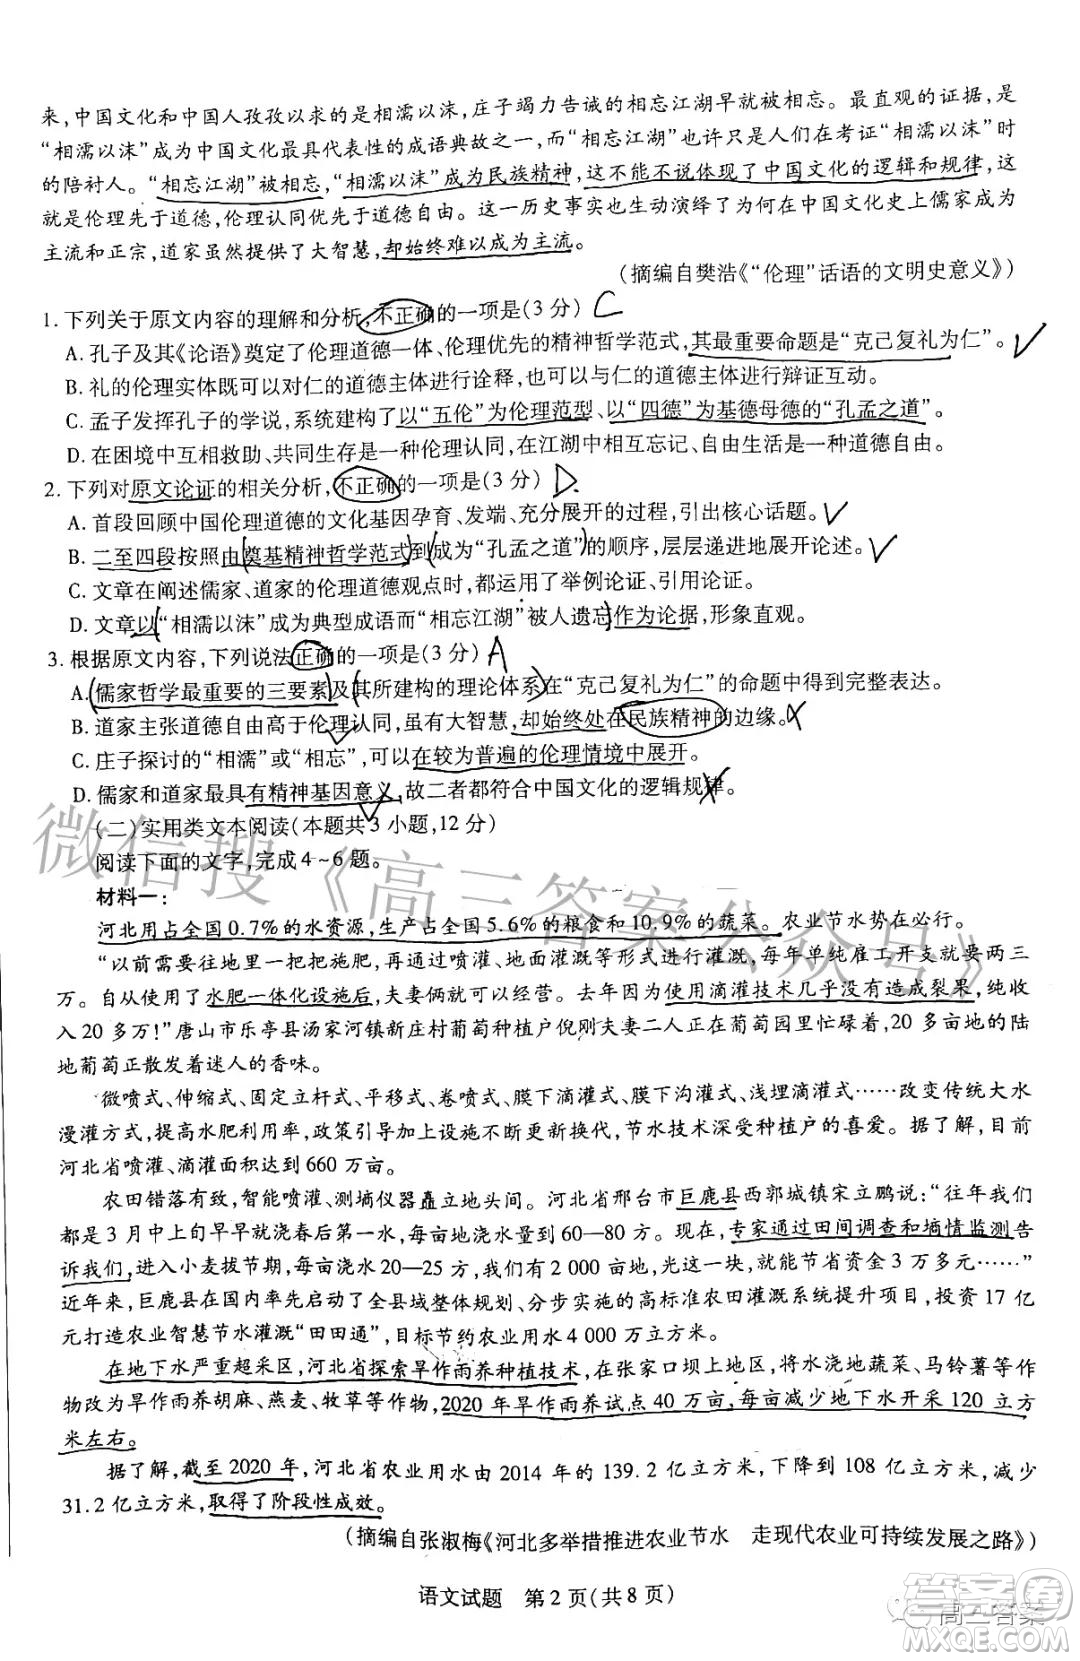 来,中国文化和中国人孜孜以求的是相濡以沫,庄子竭力告诫的相忘江湖早就被相忘。最直观的证据,是
“相濡以沫”成为中国文化最具代表性的成语典故之一,而“相忘江湖”也许只是人们在考证“相濡以沫”时
的陪衬人。“相忘江湖”被相忘,“相濡以沫”成为民族精神,这不能不说体现了中国文化的逻辑和规律,这
就是伦理先于道德,伦理认同优先于道德自由。这一历史事实也生动演绎了为何在中国文化史上儒家成为
主流和正宗,道家虽然提供了大智慧,却始终难以成为主流。
(摘编自樊浩《“伦理”话语的文明史意义》)
1. 下列关于原文内容的理解和分析,不正确的一项是(3 分) C
A. 孔子及其《论语》奠定了伦理道德一体、伦理优先的精神哲学范式,其最重要命题是“克己复礼为仁”。
B. 礼的伦理实体既可以对仁的道德主体进行诠释,也可以与仁的道德主体进行辩证互动。
C. 孟子发挥孔子的学说,系统建构了以“五伦”为伦理范型、以“四德”为基德母德的“孔孟之道”。
D. 在困境中互相救助、共同生存是一种伦理认同,在江湖中相互忘记、自由生活是一种道德自由。
2. 下列对原文论证的相关分析,不正确的一项是(3 分) D.
A. 首段回顾中国伦理道德的文化基因孕育、发端、充分展开的过程,引出核心话题。
B. 二至四段按照由奠基精神哲学范式到成为“孔孟之道”的顺序,层层递进地展开论述。
C. 文章在阐述儒家、道家的伦理道德观点时,都运用了举例论证、引用论证。
D. 文章以“相濡以沫”成为典型成语而“相忘江湖”被人遗忘作为论据,形象直观。
3. 根据原文内容,下列说法正确的一项是(3 分) A
A. 儒家哲学最重要的三要素及其所建构的理论体系在“克己复礼为仁”的命题中得到完整表达。
B. 道家主张道德自由高于伦理认同,虽有大智慧,却始终处在民族精神的边缘。
C. 庄子探讨的“相濡”或“相忘”,可以在较为普遍的伦理情境中展开。
D. 儒家和道家最具有精神基因意义,故二者都符合中国文化的逻辑规律。
(二)实用类文本阅读(本题共3 小题,12 分)
阅读下面的文字,完成 4~6 题。
材料一:
河北用占全国 0.7%的水资源,生产占全国 5.6%的粮食和 10.9%的蔬菜。农业节水势在必行。
“以前需要往地里一把把施肥,再通过喷灌、地面灌溉等形式进行灌溉,每年单纯雇工开支就要两三
万。自从使用了水肥一体化设施后,夫妻俩就可以经营。去年因为使用滴灌技术几乎没有造成裂果,纯收
入 20 多万!”唐山市乐亭县汤家河镇新庄村葡萄种植户倪刚夫妻二人正在葡萄园里忙碌着,20 多亩的陆
地葡萄正散发着迷人的香味。
微喷式、伸缩式、固定立杆式、平移式、卷喷式、膜下滴灌式、膜下沟灌式、浅埋滴灌式……改变传统大水
漫灌方式,提高水肥利用率,政策引导加上设施不断更新换代,节水技术深受种植户的喜爱。据了解,目前
河北省喷灌、滴灌面积达到 660 万亩。
农田错落有致,智能喷灌、测墒仪器矗立地头田间。河北省邢台市巨鹿县西郭城镇宋立鹏说:“往年我们
都是 3 月中上旬早早就浇春后第一水,每亩浇水量到 60—80 方。现在,专家通过田间调查和墒情监测告
诉我们,进入小麦拔节期,每亩浇水 20—25 方,我们有 2 000 亩地,光这一块,就能节省资金 3 万多元……”
近年来,巨鹿县在国内率先启动了全县域整体规划、分步实施的高标准农田灌溉系统提升项目,投资 17 亿
元打造农业智慧节水灌溉“田田通”,目标节约农业用水 4 000 万立方米。
在地下水严重超采区,河北省探索旱作雨养种植技术,在张家口坝上地区,将水浇地蔬菜、马铃薯等作
物改为旱作雨养胡麻、燕麦、牧草等作物,2020 年旱作雨养试点 40 万亩,每亩减少地下水开采 120 立方
米左右。
据了解,截至 2020 年,河北省农业用水由 2014 年的 139.2 亿立方米,下降到 108 亿立方米,减少
31.2 亿立方米,取得了阶段性成效。
(摘编自张淑梅《河北多举措推进农业节水 走现代农业可持续发展之路》)
语文试题 第 2 页(共 8 页)
微信搜《高三答案公众号》
答案圈
高三答案
MXQE.COM